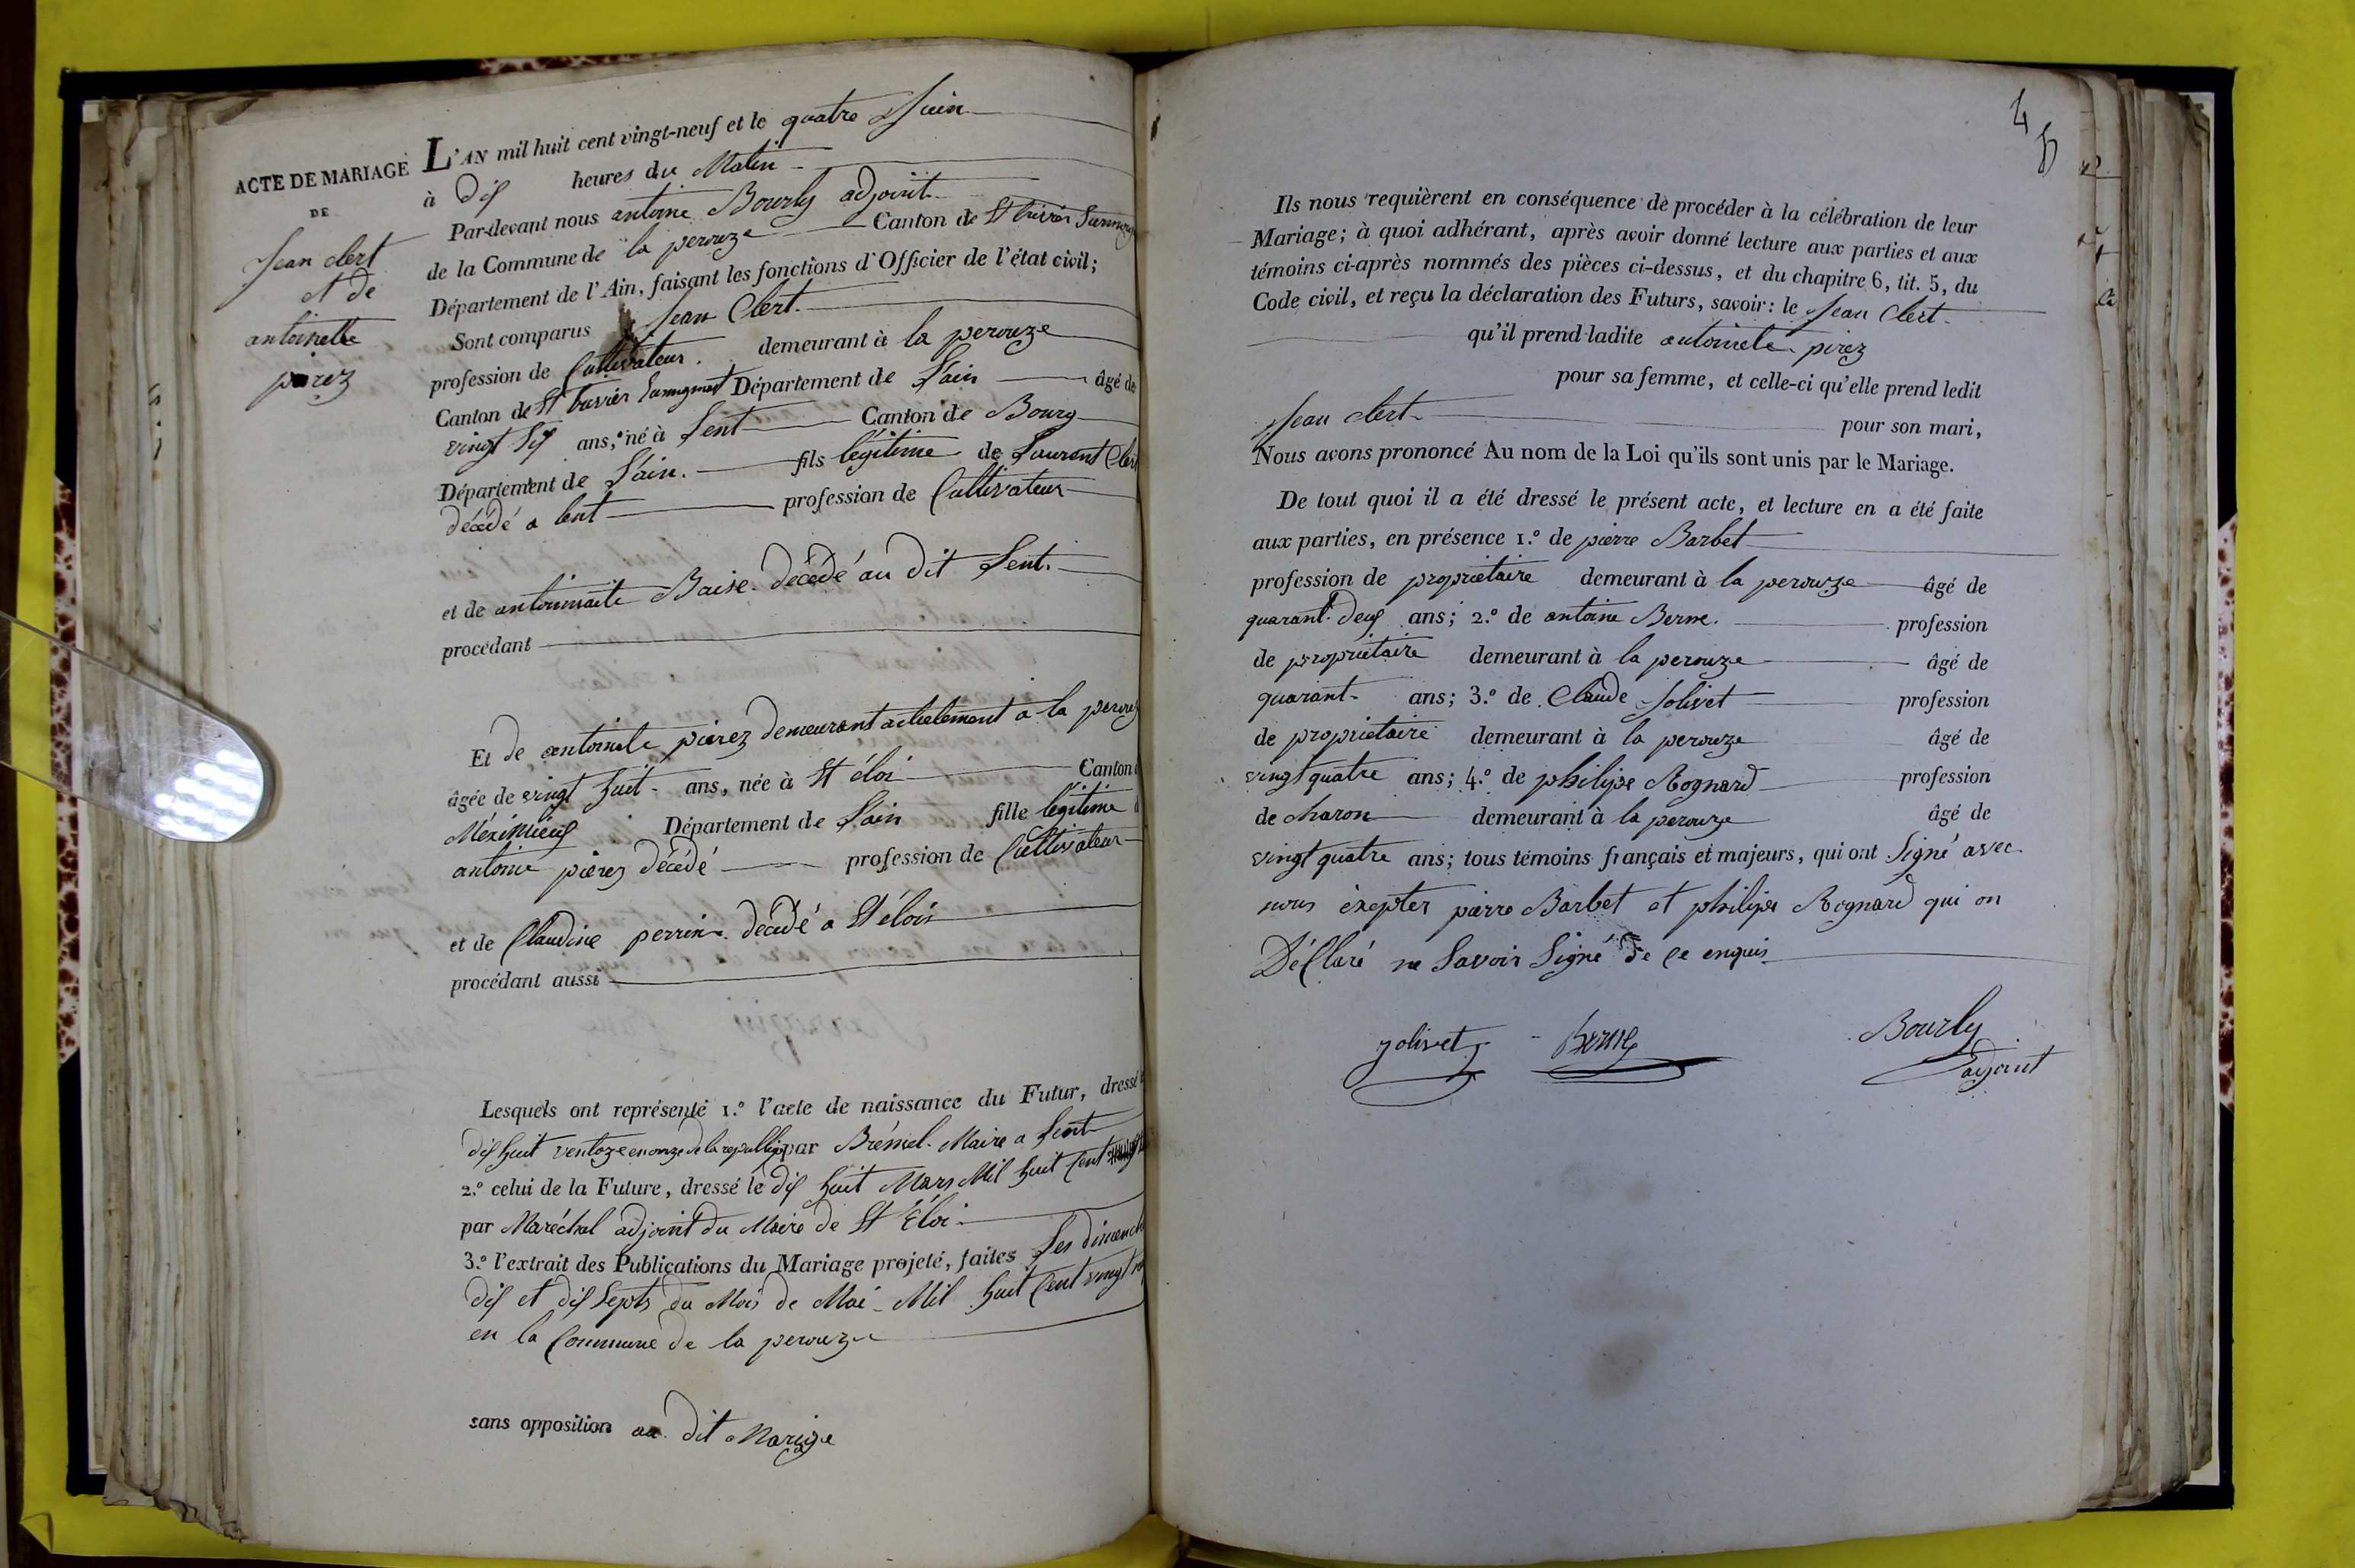 ACTE DE MARIAGE
DE
Jean clert
et de
antoinette
pirez
L'AN mil huit cent vingt-neuf et le quatre Juin
à dix heures du Matin
Par-devant nous antoine Bourly adjoint
de la Commune de la perouze Canton de St trivier
Département de l'Ain, faisant les fonctions d'Officier de l'état civil;
Sont comparus Jean Clert.
profession de Cultivateur. demeurant à la perouze
Canton de St Département de Lain âgé de
vingt six ans, né à Lent Canton de Bourg
Département de Lain. fils légitime de Laurent Clert
décédé a lent profession de Cultivateur
et de Baise. décédé au dit Lent.
procédant
Et de antoinete pierez demeurant actuelement a la
âgée de vingt huit ans, née à St éloi Canton
Méximieux Département de Lain fille légitime
antoine pierez décédé profession de Cultivateur
et de Claudine perrin décédé a St élois
procédant aussi
Lesquels ont représenté 1.° l'acte de naissance du Futur, dressé
dix huit ventoze par Maire a Lent
2.° celui de la Future, dressé le dix huit Mars Mil huit Cent
par Maréchal adjoint du Maire de St Éloi
3.° l'extrait des Publications du Mariage projeté, faites Les
dix et dix Septs du Mois de Mai Mil huit Cent vingt
en la Commune de la perouze
sans opposition au dit Marige
Ils nous requièrent en conséquence de procéder à la célébration de leur
Mariage; à quoi adhérant, après avoir donné lecture aux parties et aux
témoins ci-après nommés des pièces ci-dessus, et du chapitre 6, tit. 5, du
Code civil, et reçu la déclaration des Futurs, savoir: le Jean Clert
qu'il prend ladite antoinete pirez
pour sa femme, et celle-ci qu'elle prend ledit
Jean clert
pour son mari,
Nous avons prononcé Au nom de la Loi qu'ils sont unis par le Mariage.
De tout quoi il a été dressé le présent acte, et lecture en a été faite
aux parties, en présence 1.° de pierre Barbet
profession de propriétaire demeurant à la perouze âgé de
quarant deux ans; 2.° de antoine Berne. profession
de propriétaire demeurant à la perouze âgé de
quarant ans; 3.° de Claude Jolivet profession
de propriétaire demeurant à la perouze âgé de
vingt quatre ans; 4.° de philipe Rognard profession
de charon demeurant à la perouze âgé de
vingt quatre ans; tous témoins français et majeurs, qui ont Signé avec
nous éxepter pierre Barbet et philipe Rognard qui on
DéClaré ne Savoir Signé de Ce enquis
jolivet Berne Bourly
adjoint